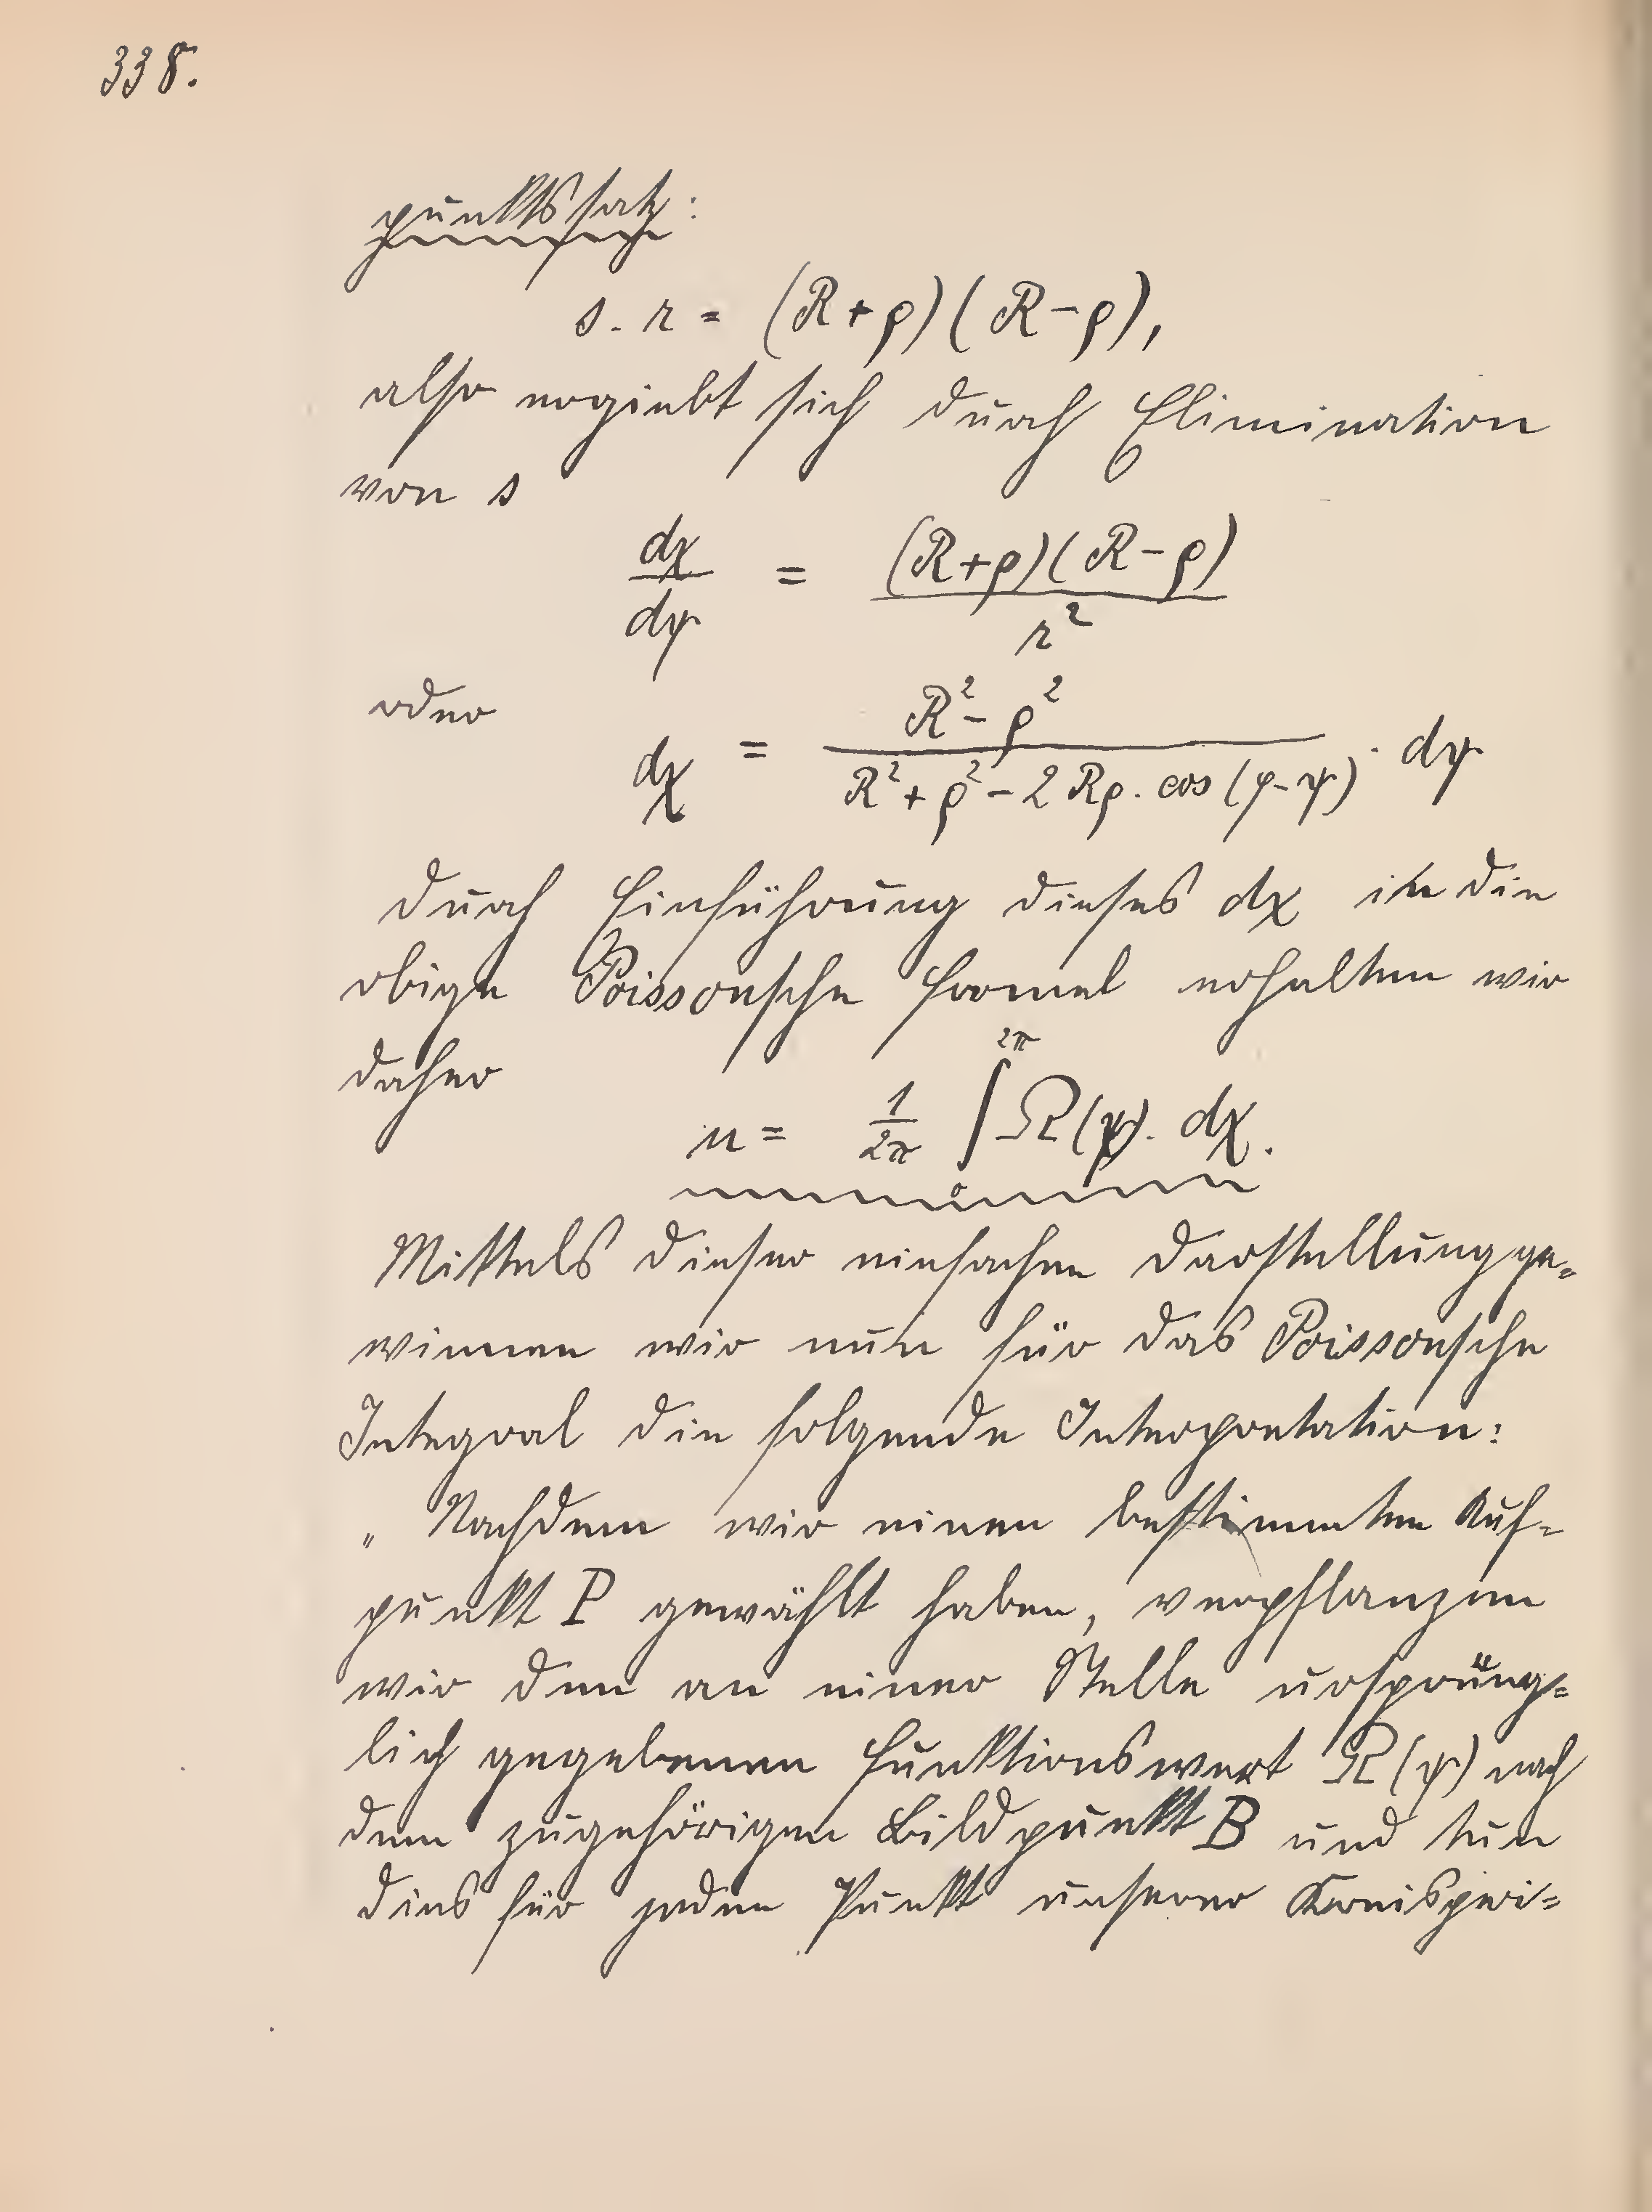 338.
punktssatz:
s . r = (R+ρ)(R−ρ),
also ergiebt sich durch Elimination
von s
dχ/dψ = (R+ρ)(R−ρ)/r²
oder
dχ = (R²−ρ²)/(R²+ρ²−2Rρ.cos(φ−ψ)) · dψ
Durch Einführung dieses dχ in die
obige Poissonsche Formel erhalten wir
daher
u = 1/2π ∫₀^2π Ω(ψ). dχ.
Mittels dieser einfachen Darstellung ge=
winnen wir nun für das Poissonsche
Integral die folgende Interpretation:
„Nachdem wir einen bestimmten Auf=
punkt P gewählt haben, verpflanzen
wir den an einer Stelle ursprüng=
lich gegebenen Funktionswert Ω(ψ) nach
dem zugehörigen Bildpunkt B und tun
dies für jeden Punkt unserer Kreisperi=